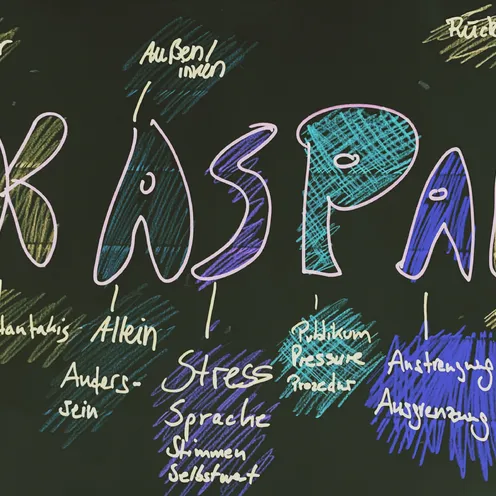 Außen/
innen
Rück
KASPA
lantakis
Allein
Anders-
sein
Stress
Sprache
Stimmen
Selbstwert
Publikum
Pressure
Prozedur
Anstrengung
Ausgrenzung